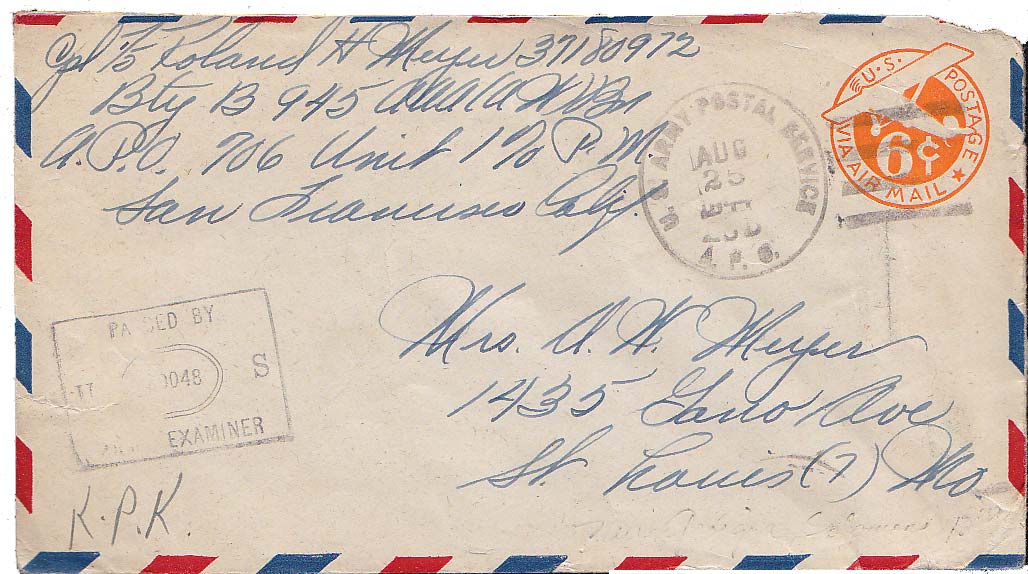 Cpl T/5 Roland H Meyer 37180972
Bty B 945 AAA AW Bn
A.P.O. 706 Unit 1 % P.M.
San Francisco Calif.
U.S. POSTAGE
VIA AIR MAIL
6¢
U.S. ARMY POSTAL SERVICE
AUG
25
A.P.O.
PASSED BY
0048 S
EXAMINER
Mrs. A. W. Meyer
1435 Gano Ave
St. Louis (7) Mo
K.P.K.